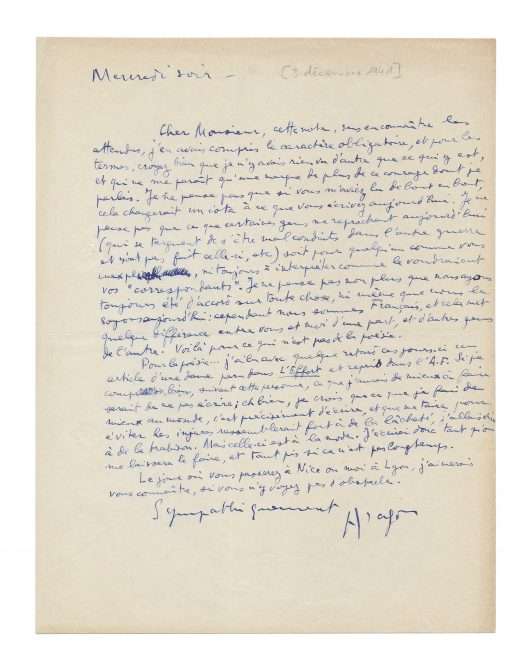 Mercredi soir – [3 décembre 1941]
Cher Monsieur, cette note, sans en connaître les
attendus, j'en avais compris le caractère obligatoire, et pour les
termes, croyez bien que je n'y avais rien vu d'autre que ce qui y est,
et qui ne me paraît qu'une marque de plus de ce courage dont je
parlais. Je ne pense pas que si vous m'aviez lu de bout en bout,
cela changerait un iota à ce que vous écrivez aujourd'hui. Je ne
pense pas que ce que certaines gens me reprochent aujourd'hui
(qui se targuent de s'être mal conduits dans l'autre guerre
et n'ont pas fait celle-ci, etc) soit pour quelqu'un comme vous
ni toujours à interpréter comme le voudraient
vos "correspondants". Je ne pense pas non plus que nous ayons
toujours été d'accord sur toute chose, ni même que nous le
soyons aujourd'hui: cependant nous sommes Français, et cela met
quelque différence entre vous et moi d'une part, et d'autres gens
de l'autre. Voilà pour ce qui n'est pas de la poésie.
Pour la poésie... j'ai lu avec quelque retard ces jours-ci un
article d'une paru dans L'Effort et dans l'A.F. Si je
bien, suivant cette personne, ce que j'aurais de mieux à faire
serait de ne pas écrire; eh bien, je crois que ce que je fais de
mieux au monde, c'est précisément d'écrire, et que me taire, pour
éviter les injures ressemblerait fort à de la lâcheté, j'allais dire
à de la trahison. Mais celle-ci est à la mode. J'écrirai donc tant qu'on
me laissera le faire, et tant pis si ce n'est pas longtemps.
Le jour où vous passerez à Nice ou moi à Lyon, j'aimerais
vous connaître, si vous n'y voyez pas d'obstacle.
Sympathiquement Aragon